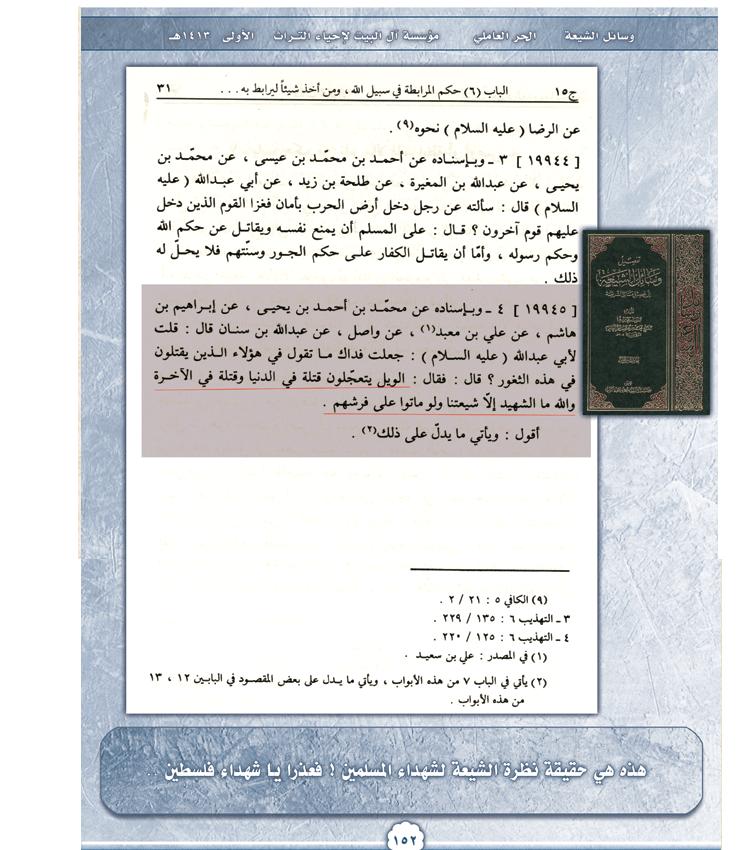 وسائل الشيعة الحر العاملي مؤسسة آل البيت لإحياء التراث الأولى ١٤١٣هـ
ج١٥ الباب (٦) حكم المرابطة في سبيل الله ، ومن أخذ شيئاً ليرابط به . . . ٣١
عن الرضا ( عليه السلام ) نحوه(٩) .
[ ١٩٩٤٤ ] ٣ ـ وبإسناده عن أحمد بن محمّد بن عيسى ، عن محمّد بن
يحيى ، عن عبدالله بن المغيرة ، عن طلحة بن زيد ، عن أبي عبدالله ( عليه
السلام ) قال : سألته عن رجل دخل أرض الحرب بأمان فغزا القوم الذين دخل
عليهم قوم آخرون ؟ قال : على المسلم أن يمنع نفسه ويقاتل عن حكم الله
وحكم رسوله ، وأمّا أن يقاتل الكفار على حكم الجور وسنّتهم فلا يحلّ له
ذلك .
[ ١٩٩٤٥ ] ٤ ـ وبإسناده عن محمّد بن أحمد بن يحيى ، عن إبراهيم بن
هاشم ، عن علي بن معبد(١) ، عن واصل ، عن عبدالله بن سنان قال : قلت
لأبي عبدالله ( عليه السلام ) : جعلت فداك ما تقول في هؤلاء الذين يقتلون
في هذه الثغور ؟ قال : فقال : الويل يتعجّلون قتلة في الدنيا وقتلة في الآخرة
والله ما الشهيد إلّا شيعتنا ولو ماتوا على فرشهم .
أقول : ويأتي ما يدلّ على ذلك(٢) .
(٩) الكافي ٥ : ٢١ / ٢ .
٣ ـ التهذيب ٦ : ١٣٥ / ٢٢٩ .
٤ ـ التهذيب ٦ : ١٢٥ / ٢٢٠ .
(١) في المصدر : علي بن سعيد .
(٢) يأتي في الباب ٧ من هذه الأبواب ، ويأتي ما يدل على بعض المقصود في البابين ١٢ ، ١٣
من هذه الأبواب .
تفصيل
وسائل الشيعة
هذه هي حقيقة نظرة الشيعة لشهداء المسلمين ! فعذرا يا شهداء فلسطين ...
١٥٢